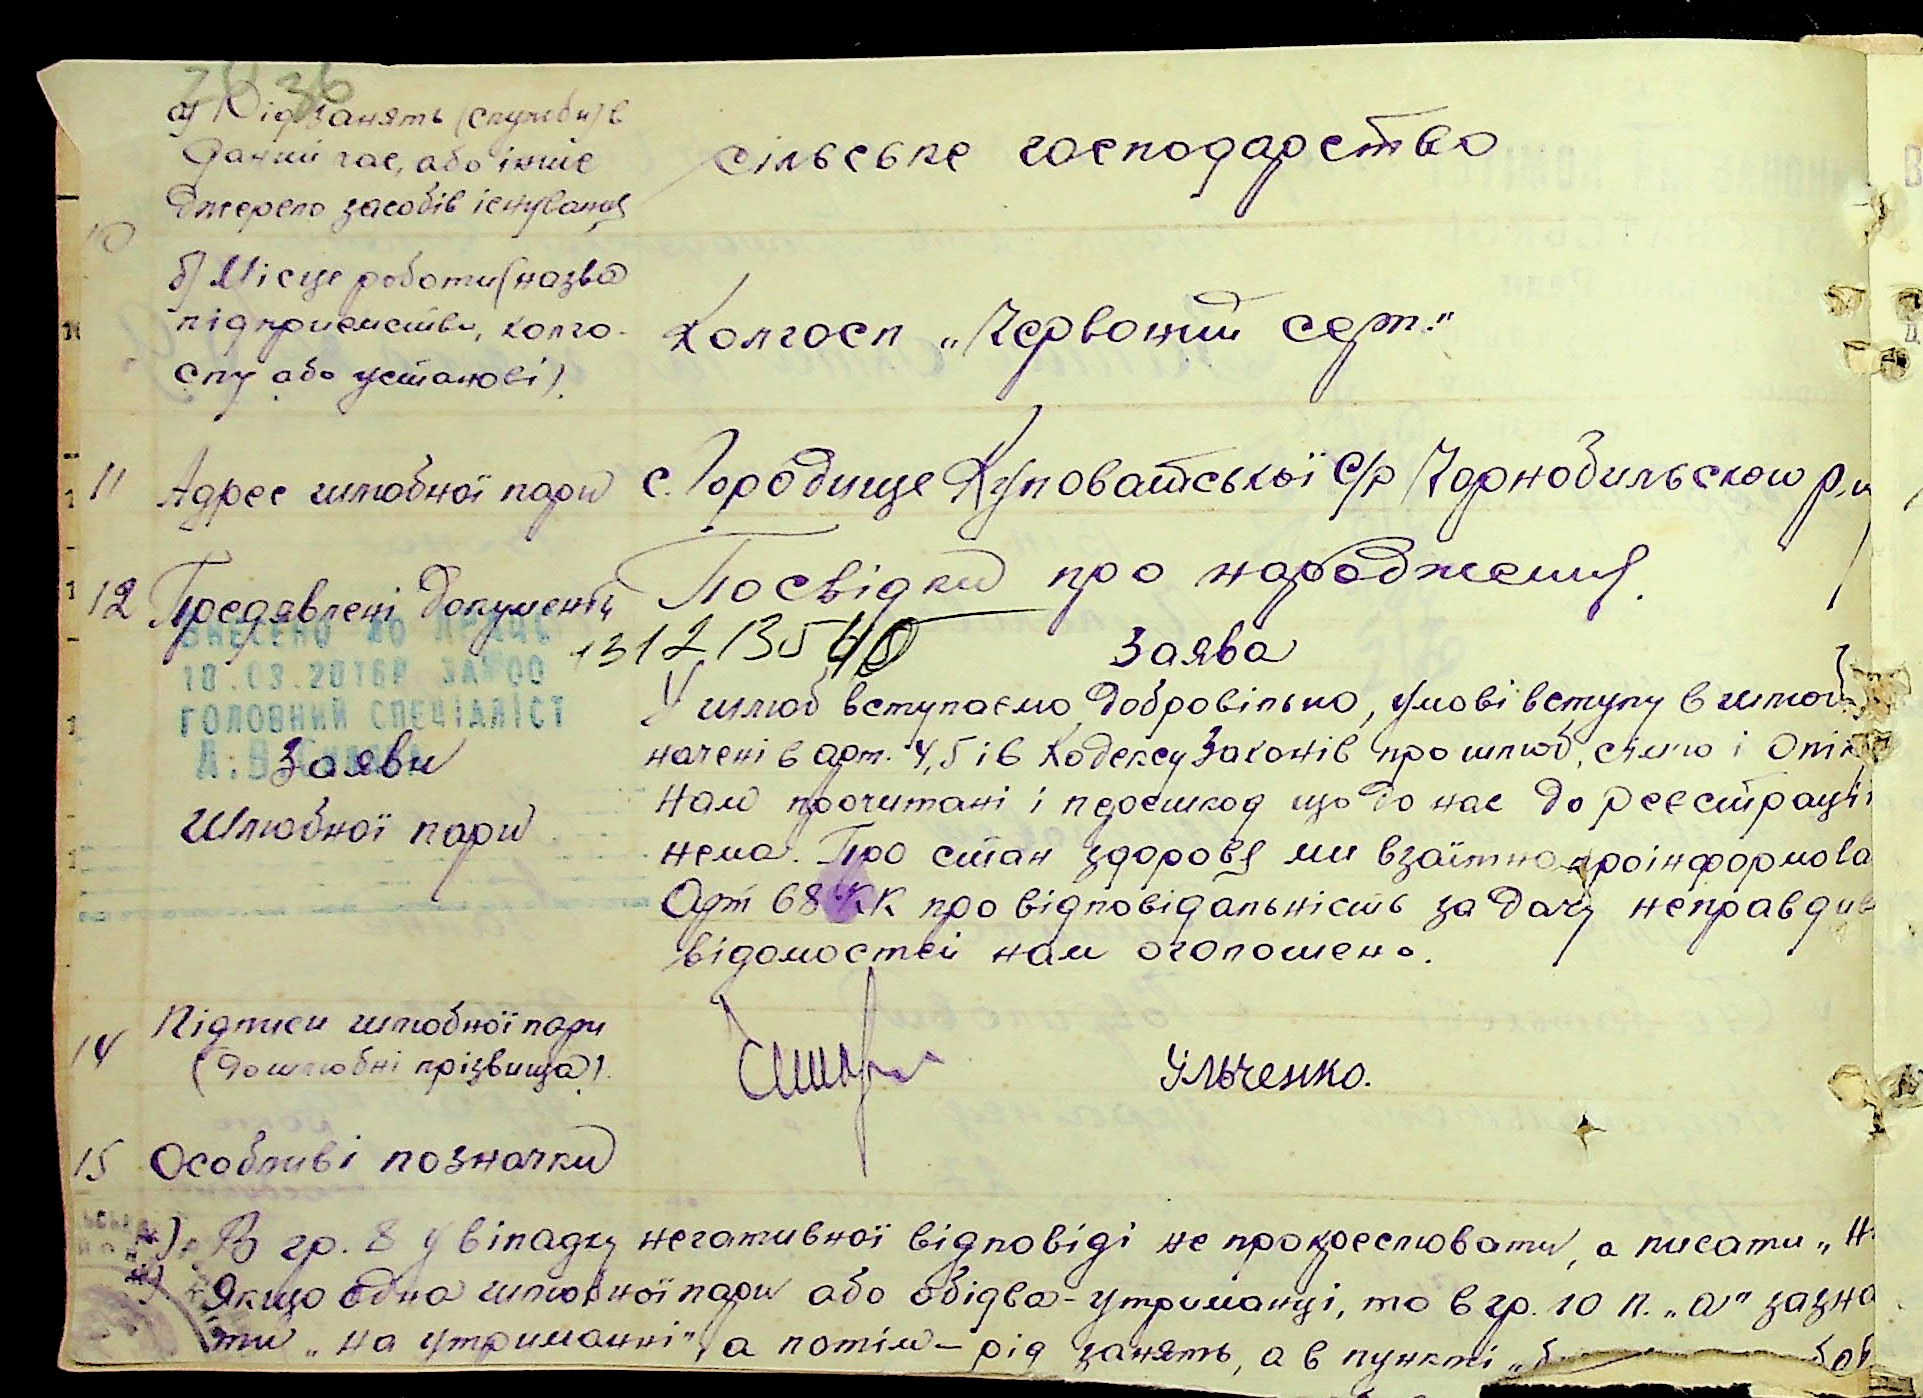 36
а) Рід занять (служби) в
даний час, або інше
джерело засобів існування
сільське господарство
10
б) Місце роботи (назва
підприємства, колго-
спу або установі).
Колгосп „Червоний серп."
11 Адрес шлюбної пари с. Городище Куповатської с/р Чорнобильского р.н
12 Предявлені документи Посвідки про народження.
ВНЕСЕНО ДО
10.03.2016Р. ЗА №00
ГОЛОВНИЙ СПЕЦІАЛІСТ
Заява
Заяви
Шлюбної пари
У шлюб вступаємо добровільно, умові вступу в шлюб
начені в арт. 4,5 і 6 Кодексу Законів про шлюб, сім'ю і Опік
нам прочитані і перешкод що до нас до реєстрації
нема. Про стан здоровя ми взаїмно проінформова
Арт 68 КК про відповідальність за дачу неправдив
відомостей нам оголошено.
14 Підписи шлюбної пари
(дошлюбні прізвища).
Ільченко.
15 Особливі позначки
*) В гр. 8 у віпадку негативної відповіді не прокреслювати, а писати „Н
*) Якщо одна шлюбної пари або обідва - утриманці, то в гр. 10 п. „а" зазна
ти „на утриманні", а потім - рід занять, а в пункті „б